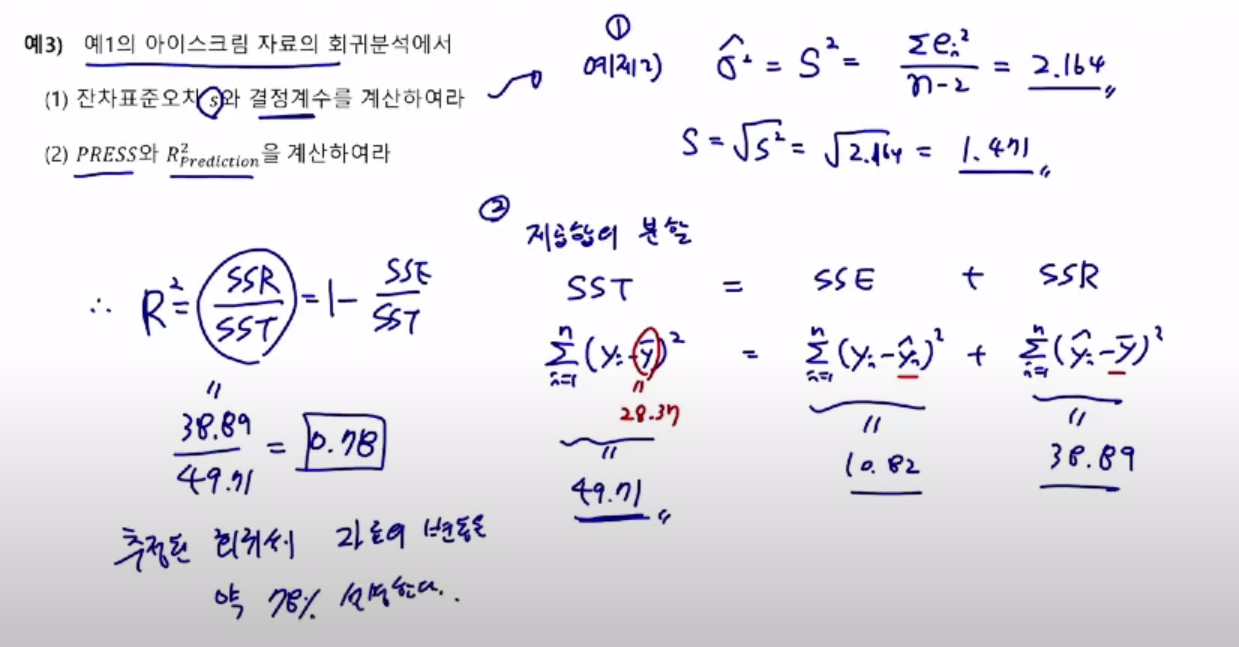 예3) 예1의 아이스크림 자료의 회귀분석에서
(1) 잔차표준오차 s와 결정계수를 계산하여라
(2) PRESS와 R²Prediction을 계산하여라
①
예제2) σ̂² = S² = Σeᵢ² / n-2 = 2.164
S = √S² = √2.164 = 1.471
②
제곱합의 분할
SST = SSE + SSR
Σⁿᵢ₌₁ (yᵢ - ȳ)² = Σⁿᵢ₌₁ (yᵢ - ŷᵢ)² + Σⁿᵢ₌₁ (ŷᵢ - ȳ)²
28.37
49.71 10.82 38.89
∴ R² = SSR / SST = 1 - SSE / SST
38.89 / 49.71 = 0.78
추정된 회귀선이 자료의 변동을
약 78% 설명한다.